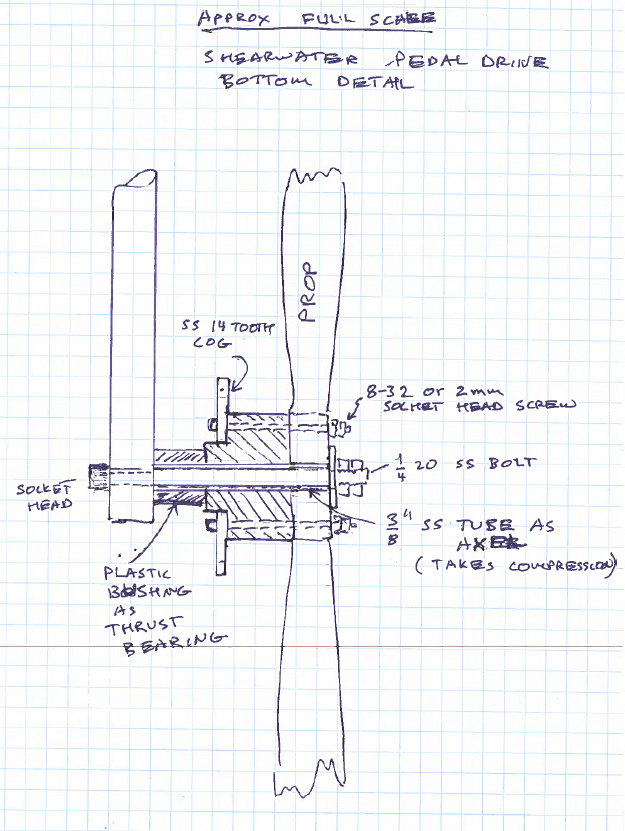 APPROX FULL SCALE
SHEARWATER PEDAL DRIVE
BOTTOM DETAIL
PROP
SS 14 TOOTH
COG
8-32 or 2mm
SOCKET HEAD SCREW
1/4 20 SS BOLT
SOCKET
HEAD
3/8" SS TUBE AS
AXEL
(TAKES COMPRESSION)
PLASTIC
BUSHING
AS
THRUST
BEARING